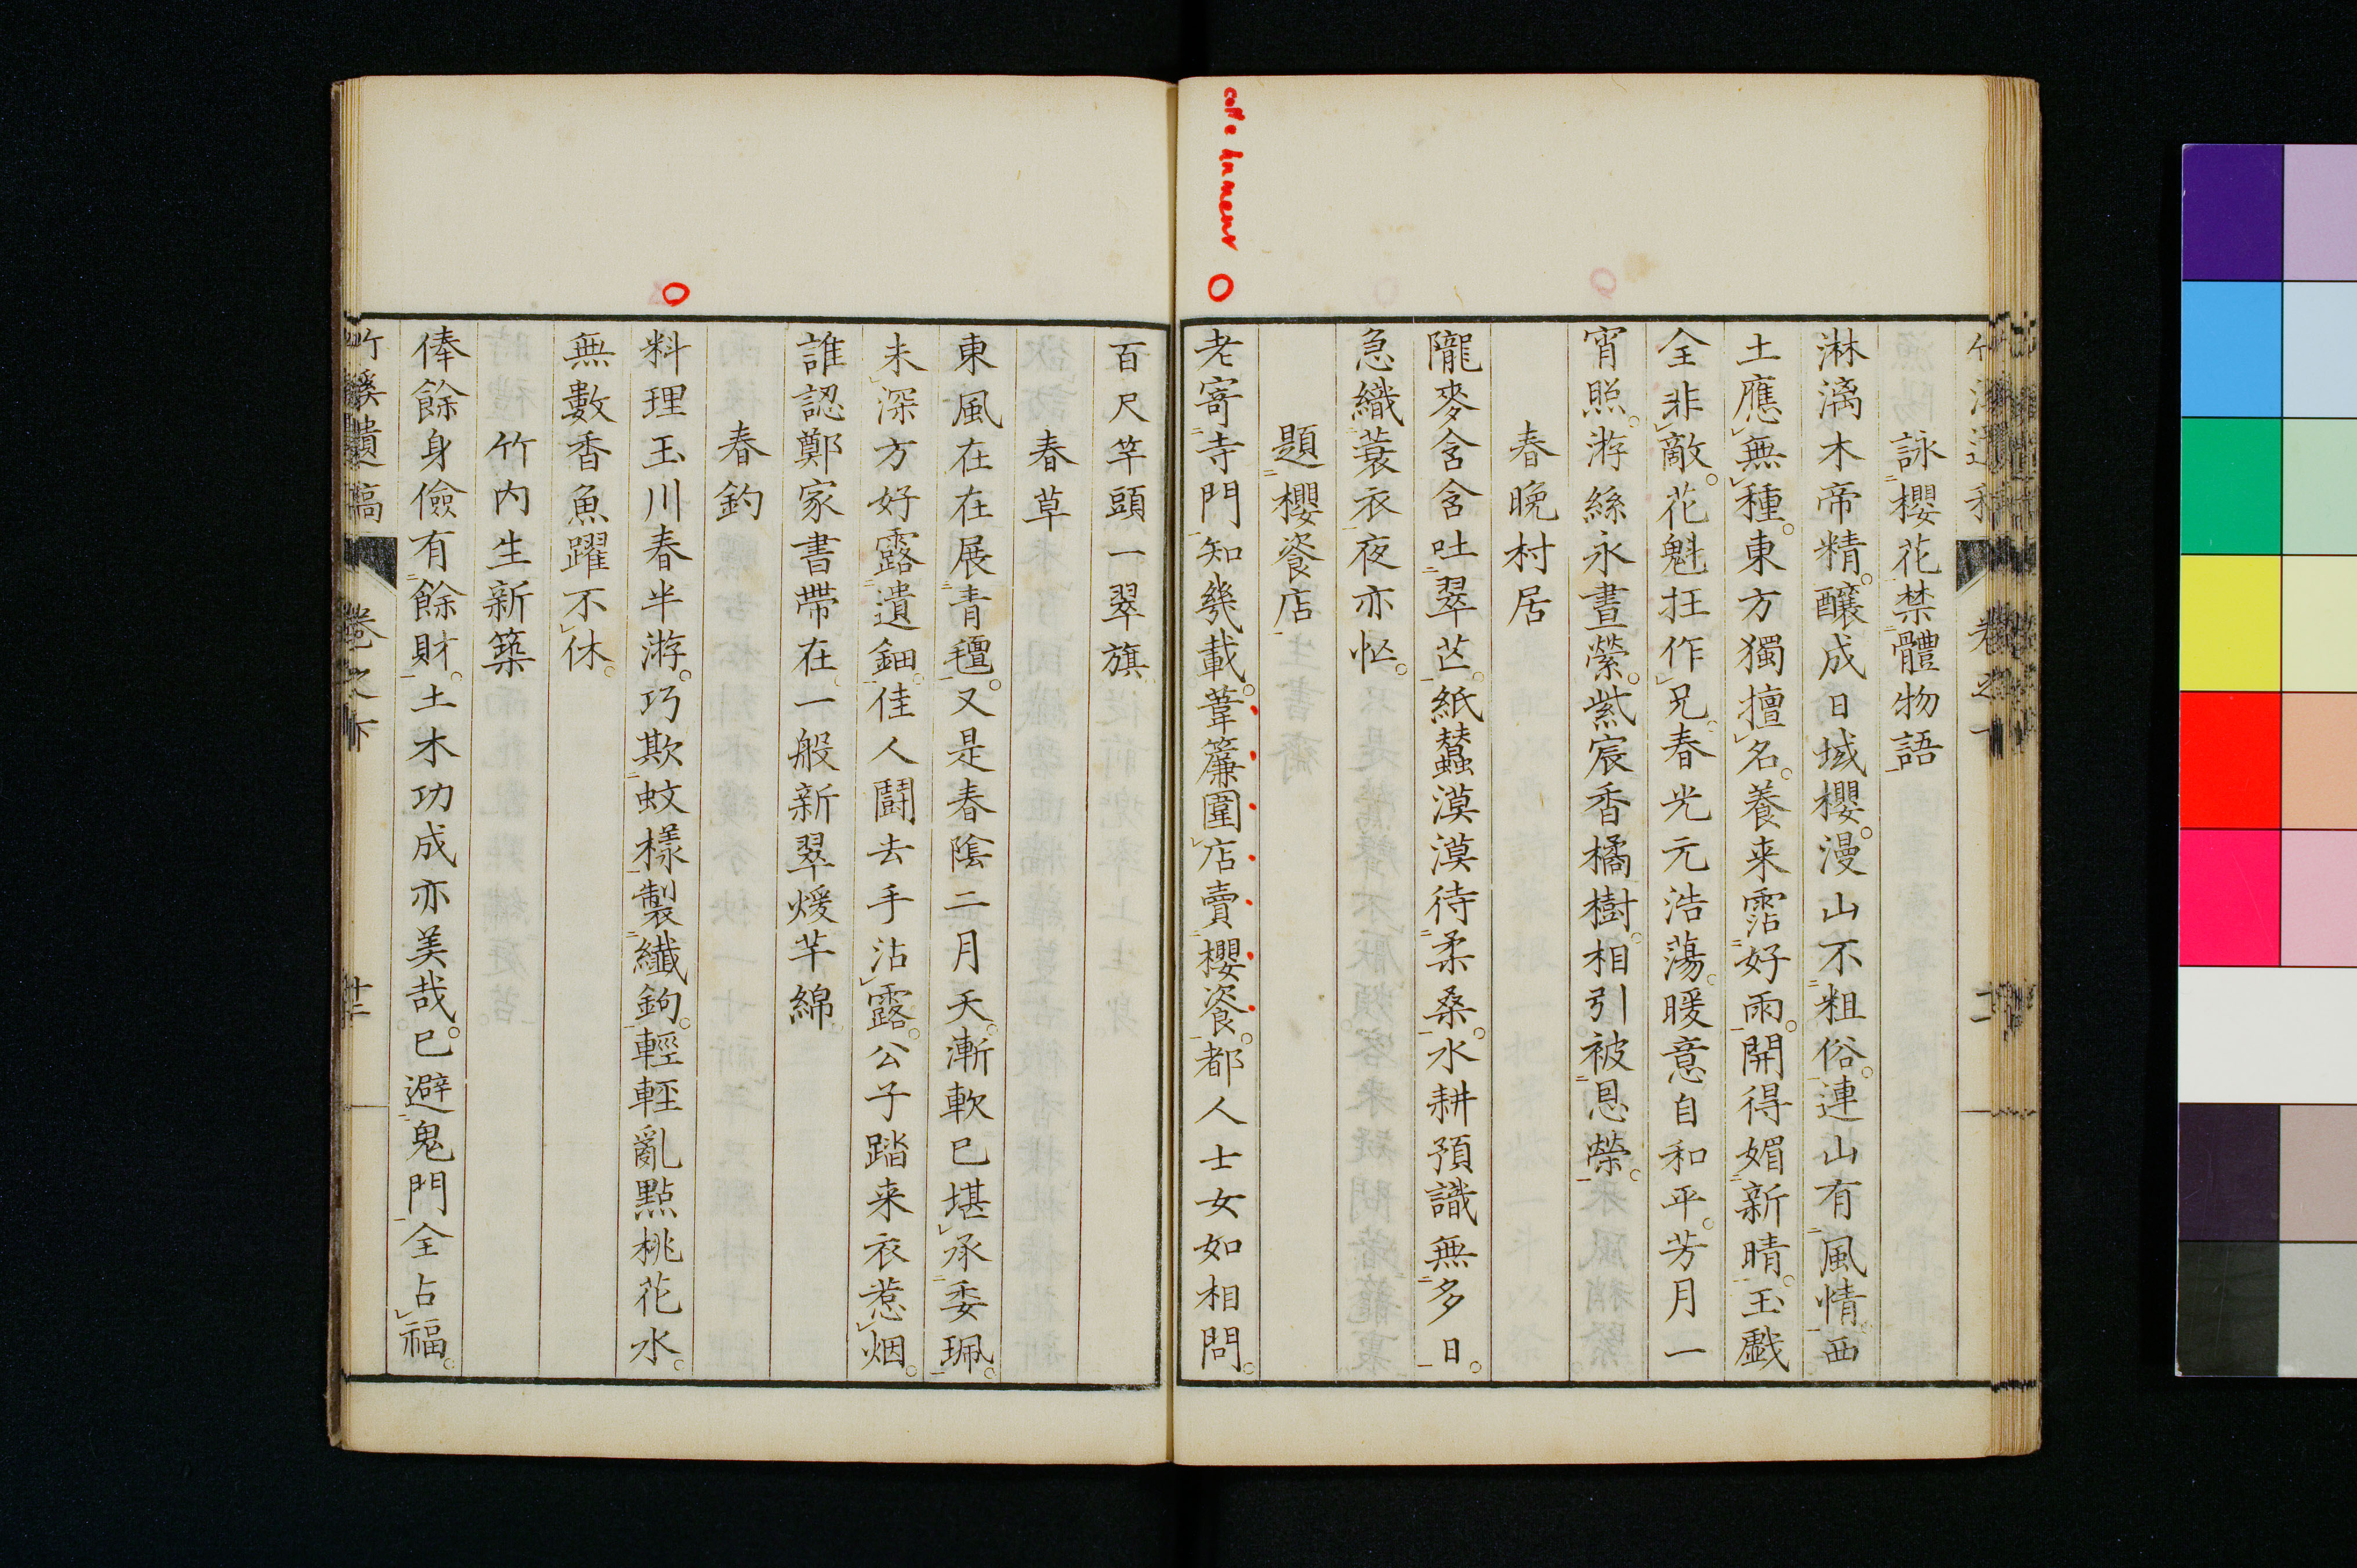 詠櫻花禁體物語
淋漓木帝精。釀成日域櫻。漫山不粗俗。連山有風情。西
土應無種。東方獨擅名。養来霑好雨。開得媚新晴。玉戲
全非敵。花魁抂作兄。春光元浩蕩。暖意自和平。芳月一
宵照。游絲永晝縈。紫宸香橘樹。相引被恩榮。
春晩村居
隴麥含含吐翠芒。紙蠶漠漠待柔桑。水耕預識無多日。
急織蓑衣夜亦忙。
題櫻餈店
老寄寺門知幾載。葦簾圍店賣櫻餈。都人士女如相問。
百尺竿頭一翠旗
春草
東風在在展青氊。又是春陰二月天。漸軟已堪承委珮。
未深方好露遺鈿。佳人鬪去手沾露。公子踏来衣惹烟。
誰認鄭家書帶在。一般新翠煖芊綿
春釣
料理玉川春半游。巧欺蚊樣製纖鉤。輕輕亂點桃花水。
無數香魚躍不休。
竹内生新築
俸餘身儉有餘財。土木功成亦美哉。已避鬼門全占福。
竹溪遺稿 卷之下 廿二